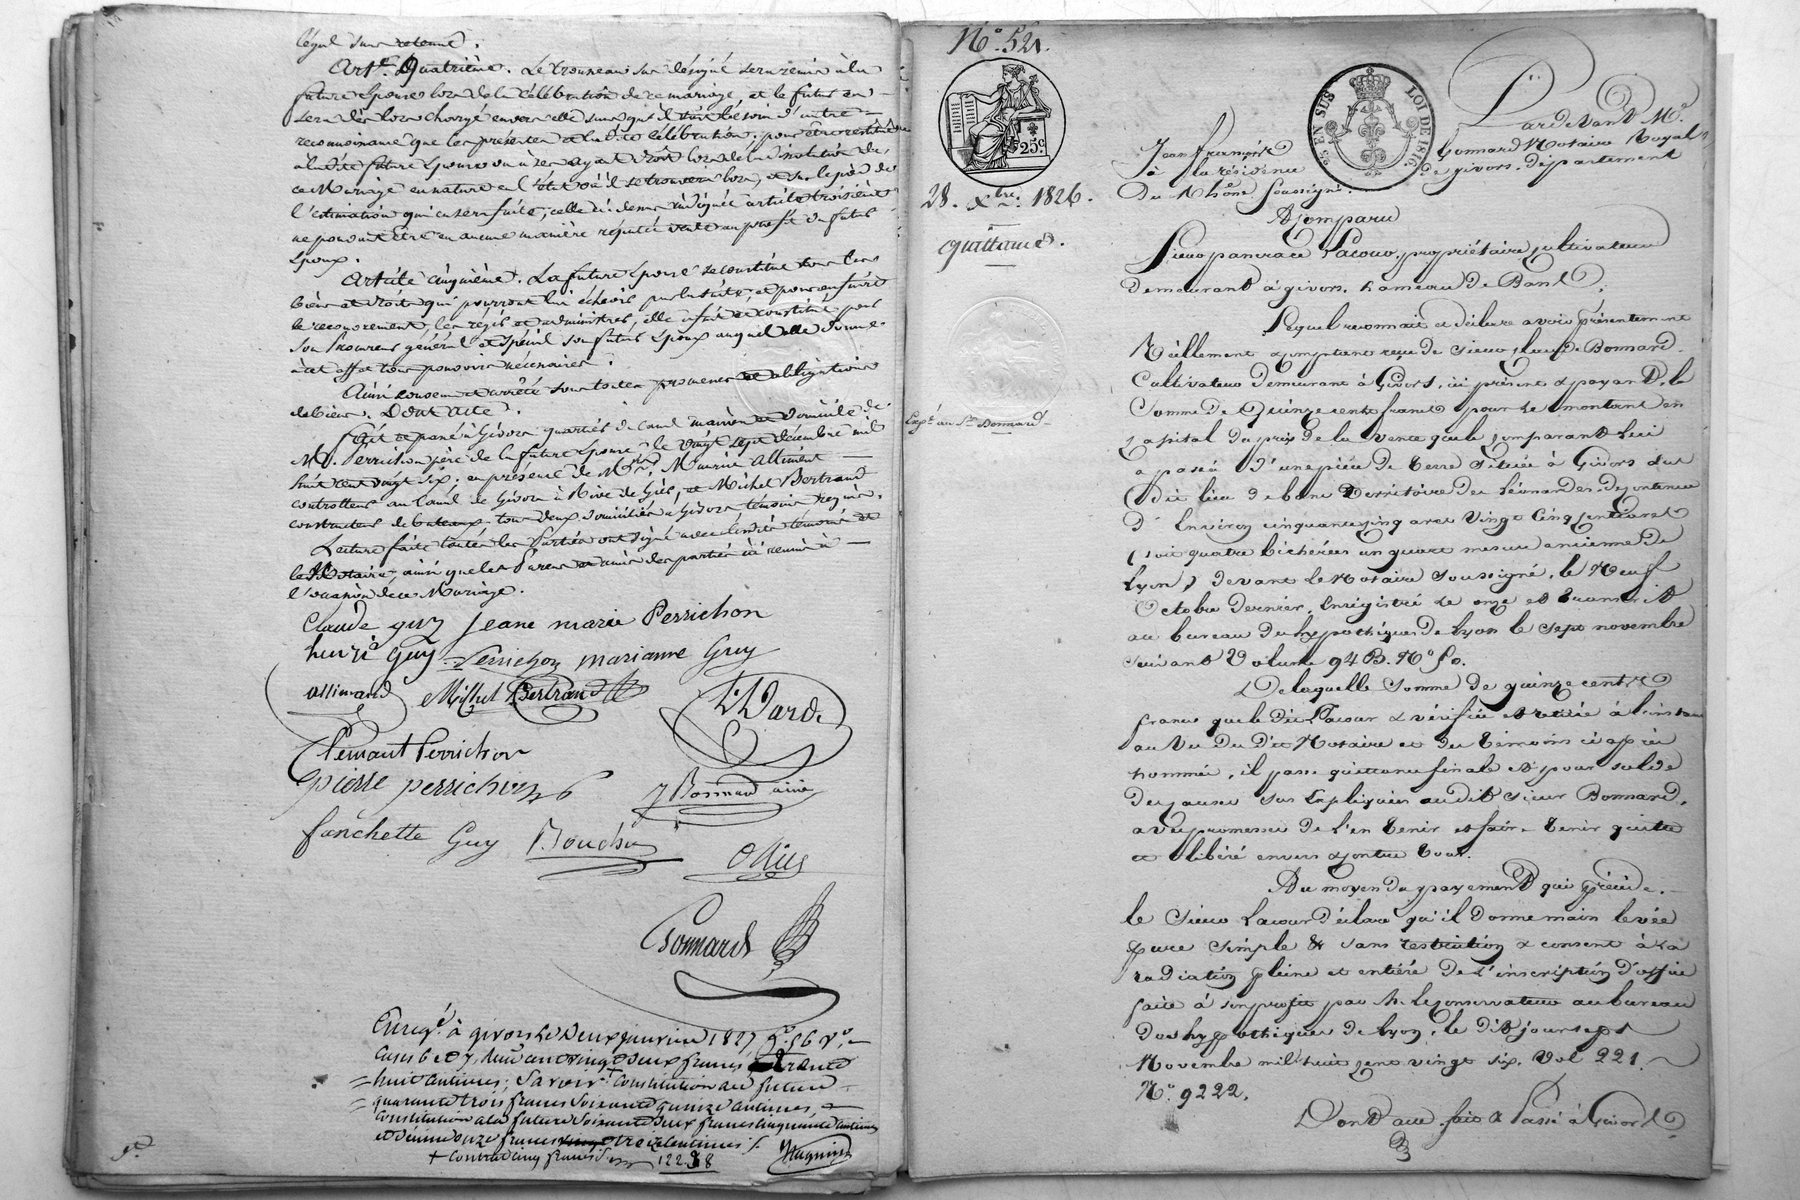 légal sans retenue.
Art.e Quatrième. Le trousseau sus désigné sera remis à la
future Epouse lors de la célébration de ce mariage, et le futur en
sera dès lors chargé envers elle sans qu'il soit besoin d'autre
reconnaissance que les présentes et la dite célébration, pour être restitué
à la dite future Epouse ou à ses ayant droit lors de la dissolution du
ce Mariage en nature en l'état où il se trouvera lors, et sur le pied de
l'estimation qui en sera faite, celle ci-dessus indiquée article troisième
ne pouvant être en aucune manière réputée vente au profit du futur
Epoux.
Article cinquième. La future Epouse se constitue tous les
biens et droits qui pourront lui échoir par la suite, et pour en suivre
le recouvrement, les régir et administrer, elle a fait et constitué pour
son Procureur général et spécial son futur Epoux auquel elle donne
à cet effet tous pouvoirs nécessaires.
Ainsi convenu et arrêté sous toutes promesses et obligations
de biens. Dont acte.
Fait et passé à Givors quartier du canal maison et domicile de
M. Perrichon père de la future Epouse, le vingt sept décembre mil
huit cent vingt six; en présence de MM. Maurice Alliment
controlleur au Canal de Givors à Rive de Gier, et Michel Bertrand
constructeur de bateaux, tous deux domiciliés à Givors témoins requis.
Lecture faite toutes les Parties ont signé avec lesdits témoins et
le Notaire, ainsi que les Parens et amis des parties ici réunis à
l'occasion de ce Mariage.
Claude guy Jeane marie Perrichon
henri Guy Perrichon marianne Guy
allimand Michel Bertrand
Dard
Clemant Perrichon
pierre perrichon
Bonnard ainé
fanchette Guy Bouchu
Gonnard
Enreg.é à givors le deux janvier 1827, f.o 56 v.o
cases 6 et 7, Reçu cent vingt deux francs trente
huit centimes; Savoir: + constitution au futur
quarante trois francs soixante quinze centimes,
constitution à la future soixante deux francs cinquante centimes
et décime onze francs treize centimes.
+ contrat cinq francs
122.38
N.o 521.
25.c
25 EN SUS
LOI DE 1816
28. xbre. 1826.
quittance.
Exp.é au S.r Bonnard
Par devant M.e
Jean François Gonnard Notaire Royal
à la résidence de givors, département
Du Rhône soussigné.
A Comparu
Sieur pancrace Lacour, propriétaire cultivateur
demeurant à givors, hameau de Bans.
Lequel reconnait et déclare avoir présentement
Réellement & comptant reçu de sieur Claude Bonnard
Cultivateur demeurant à Givors, ici présent & payant, la
Somme de Quinze cents francs pour le montant en
Capital du prix de la vente que le comparant lui
a passé d'une pièce de terre située à Givors au
Dit lieu de bans Territoire des Léonardes, de contenue
d'Environ cinquante cinq ares Vingt Cinq centiares
(soit quatre bicherées un quart mesure ancienne de
Lyon) devant le Notaire Soussigné, le Neuf
Octobre dernier, Enregistré le onze et transcrit
au bureau des hypothèques de Lyon le sept novembre
suivant Volume 94 B. N.o 50.
De laquelle Somme de quinze cents
francs que le dit Lacour a vérifiée et retirée à l'instant
au Vu du dit Notaire et des témoins ci après
nommés, il passe quittance finale et pour solde
des causes sus Expliquées audit sieur Bonnard,
avec promesse de l'en tenir et faire tenir quitte
et libéré envers & contre tous.
Au moyen du payement qui précède,
le Sieur Lacour déclare qu'il donne main levée
pure simple & sans restriction & consent à la
radiation pleine et entière de l'inscription d'office
faite à son profit par M. le conservateur au bureau
Des hypothèques de Lyon, le dit jour sept
Novembre mil huit cent vingt six, Vol 221.
N.o 9222.
Dont acte fait & Passé à Givors